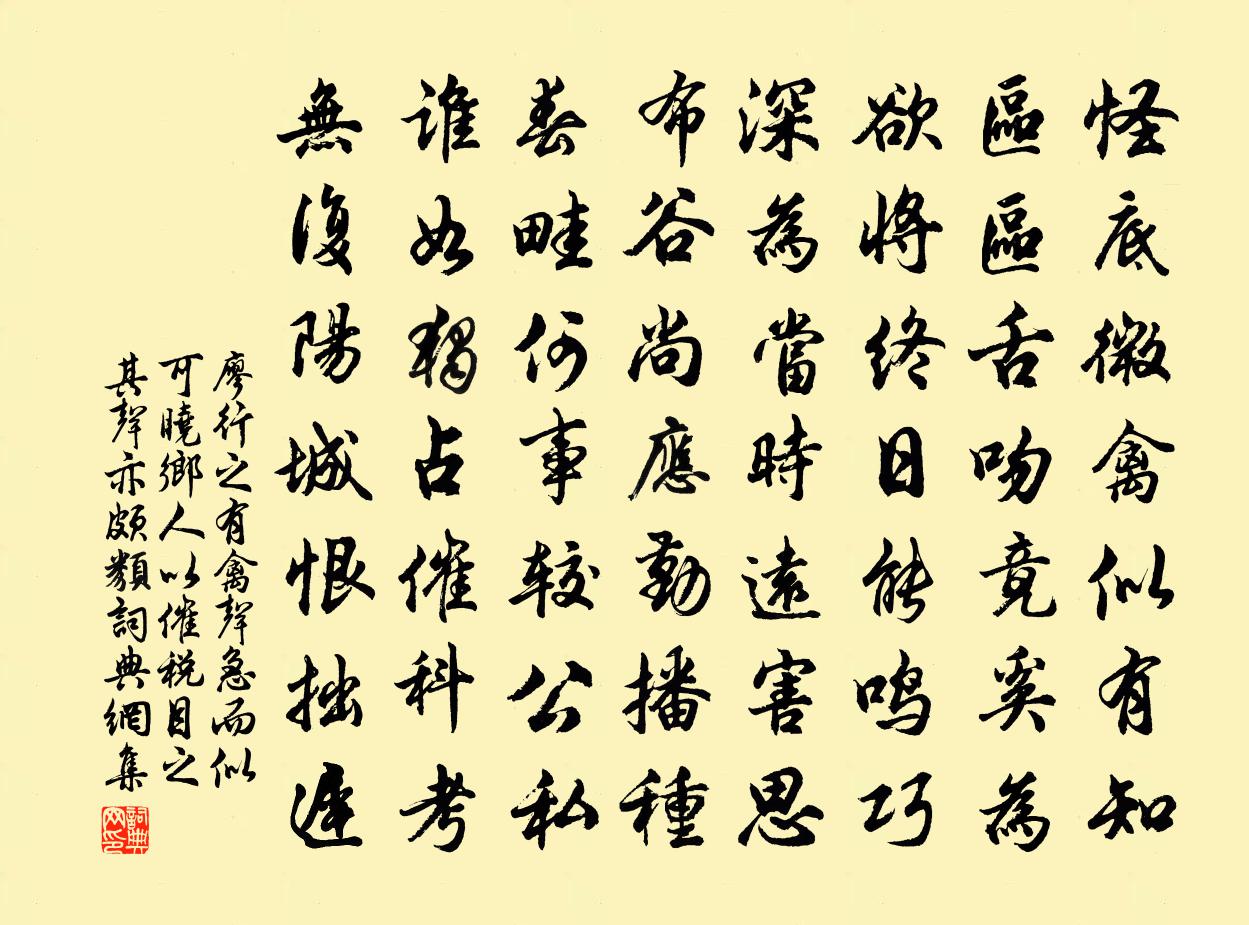 怪底微禽似有知
區區舌吻竟奚為
欲將終日能鳴巧
深為當時遠害思
布谷尚應勤播種
春畦何事較公私
誰如獨占催科考
無復陽城恨拙遲
廖行之有禽聲急而似
可曉鄉人以催税目之
其聲亦頗類詞典網集
詞典网印